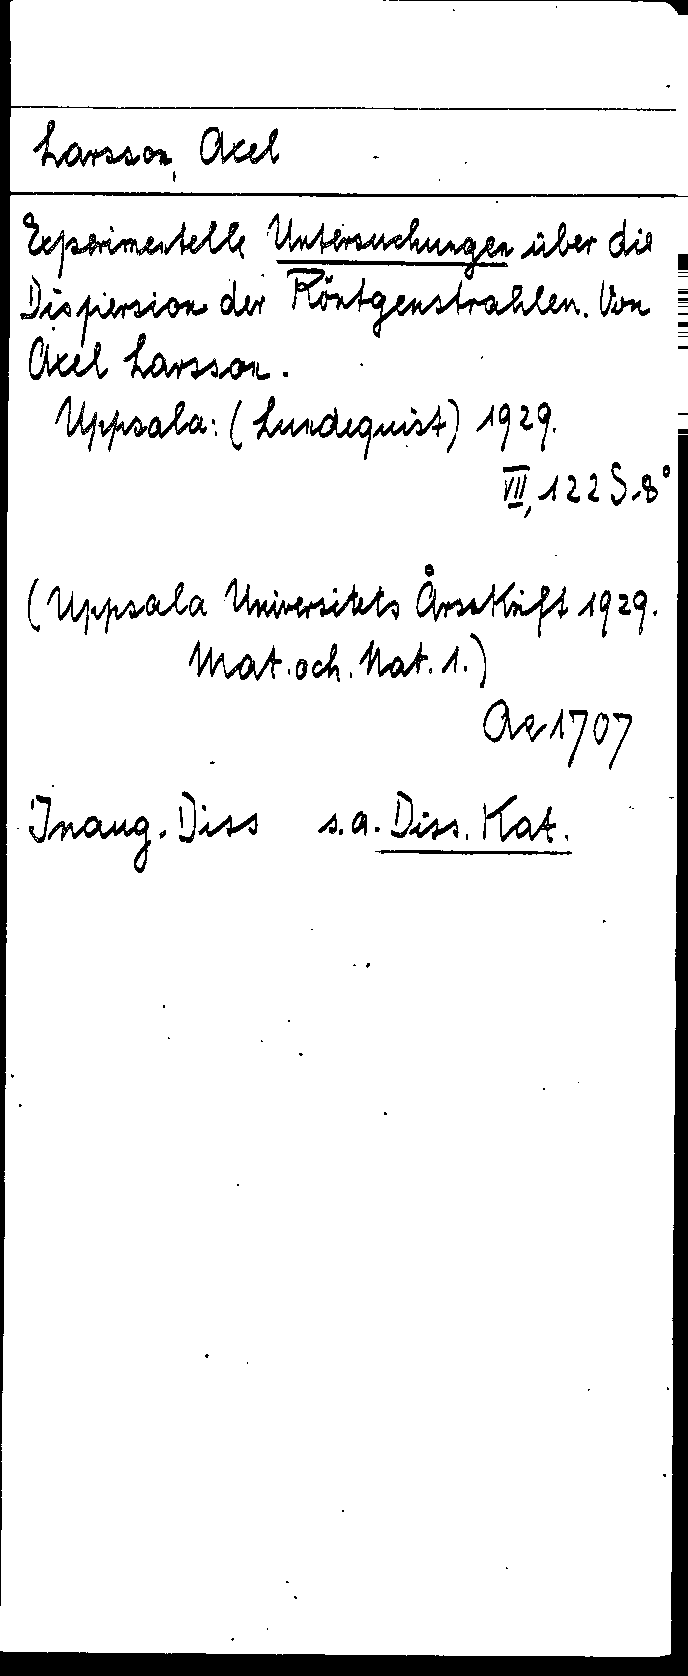 Larsson, Axel
Experimentelle Untersuchungen über die
Dispersion der Röntgenstrahlen. Von
Axel Larsson.
Uppsala: (Lundequist) 1929.
VII, 122 S. 8°
(Uppsala Universitets Årsskrift 1929.
Mat. och. Nat. 1.)
Ae 1707
Inaug. Diss s.a. Diss. Kat.